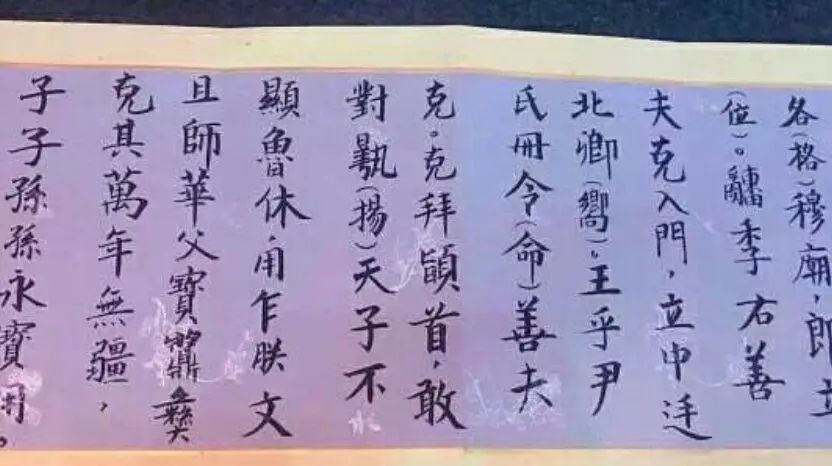 各(格)穆廟,即立
(位)。季右善
夫克入門,立中廷
北卿(嚮)。王乎尹
氏冊令(命)善夫
克。克拜首,敢
對(揚)天子不
顯魯休用乍朕文
且師華父寶彝
克其萬年無疆,
子子孫孫永寶用。